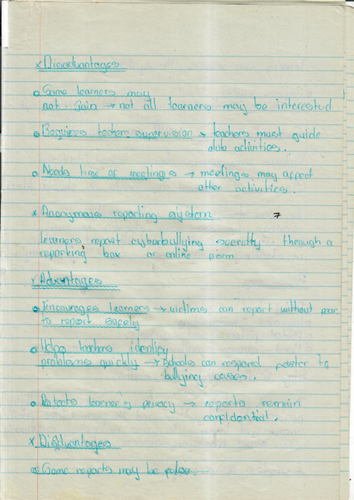 x Disadvantages
o Some learners may
not join → not all learners may be interested
o Requires teachers supervision → teachers must guide
club activities.
o Needs time or meetings → meetings may affect
other activities.
x Anonymous reporting system 7
learners report cyberbullying secretly through a
reporting box or online form
x Advantages
o Encourages learners → victims can report without fear
to report safely
o Helps teachers identify
problems quickly → schools can respond faster to
bullying cases.
o Protects learner's privacy → reports remain
confidential.
x Disadvantages
o Some reports may be false